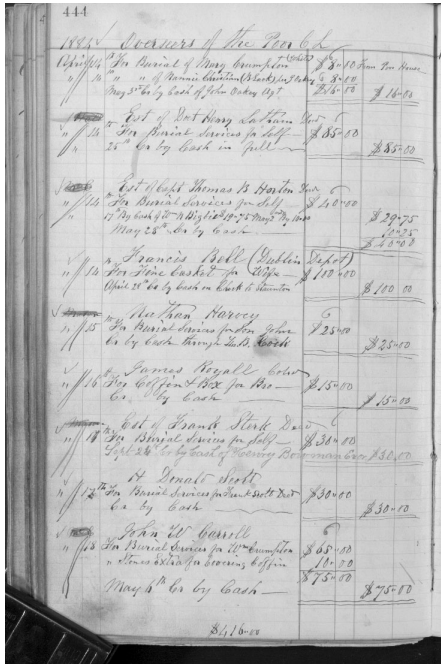 444
1885 Overseers of the Poor C. L.
April 14 th For Burial of Mary Crumpton (White) $8-00 From Poor House
" 14 " " of Nannie Christian (Black) for J Oakey $8-00
May 5th Cr by Cash of John Oakey Agt $16-00 $16-00
Est of Henry Latham Decd
" 14 For Burial Services for Self $85-00
" 25th Cr by Cash in full $85-00
Est of Capt Thomas B Horton Decd
" 14 For Burial Services for Self $40-00
17th By Cash 19-75 May $29-75
May 28th Cr by Cash 10-25
$40-00
Francis Bell (Dublin Depot)
" 14 For Fine Casket for Wife $100-00
April 28th Cr by Cash on Check to Staunton $100 00
Nathan Harvey
" 15 For Burial Services for Son John $25-00
Cr by Cash through $25-00
James Royall Cold
" 16 For Coffin & Box for Bro $15-00
Cr by Cash $15-00
Est of Frank Decd
" 18 For Burial Services for Self $30-00
Sept 24th Cr by Cash of Henry Bowman $30.00
H Donald Scott
" 17th For Burial Services for Frank Scott Decd $30-00
Cr by Cash $30-00
John W Carroll
" 18 For Burial Services for Wm Crumpton $65-00
" Extra for Covering Coffin 10-00
$75-00
May 4th Cr by Cash $75-00
$416-00